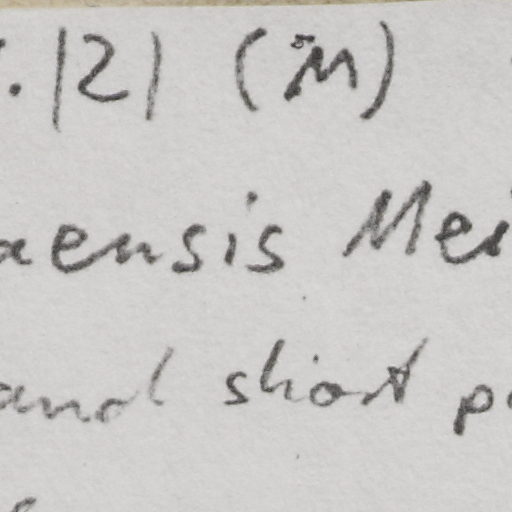 .121 (M)
aensis Mei
and short p